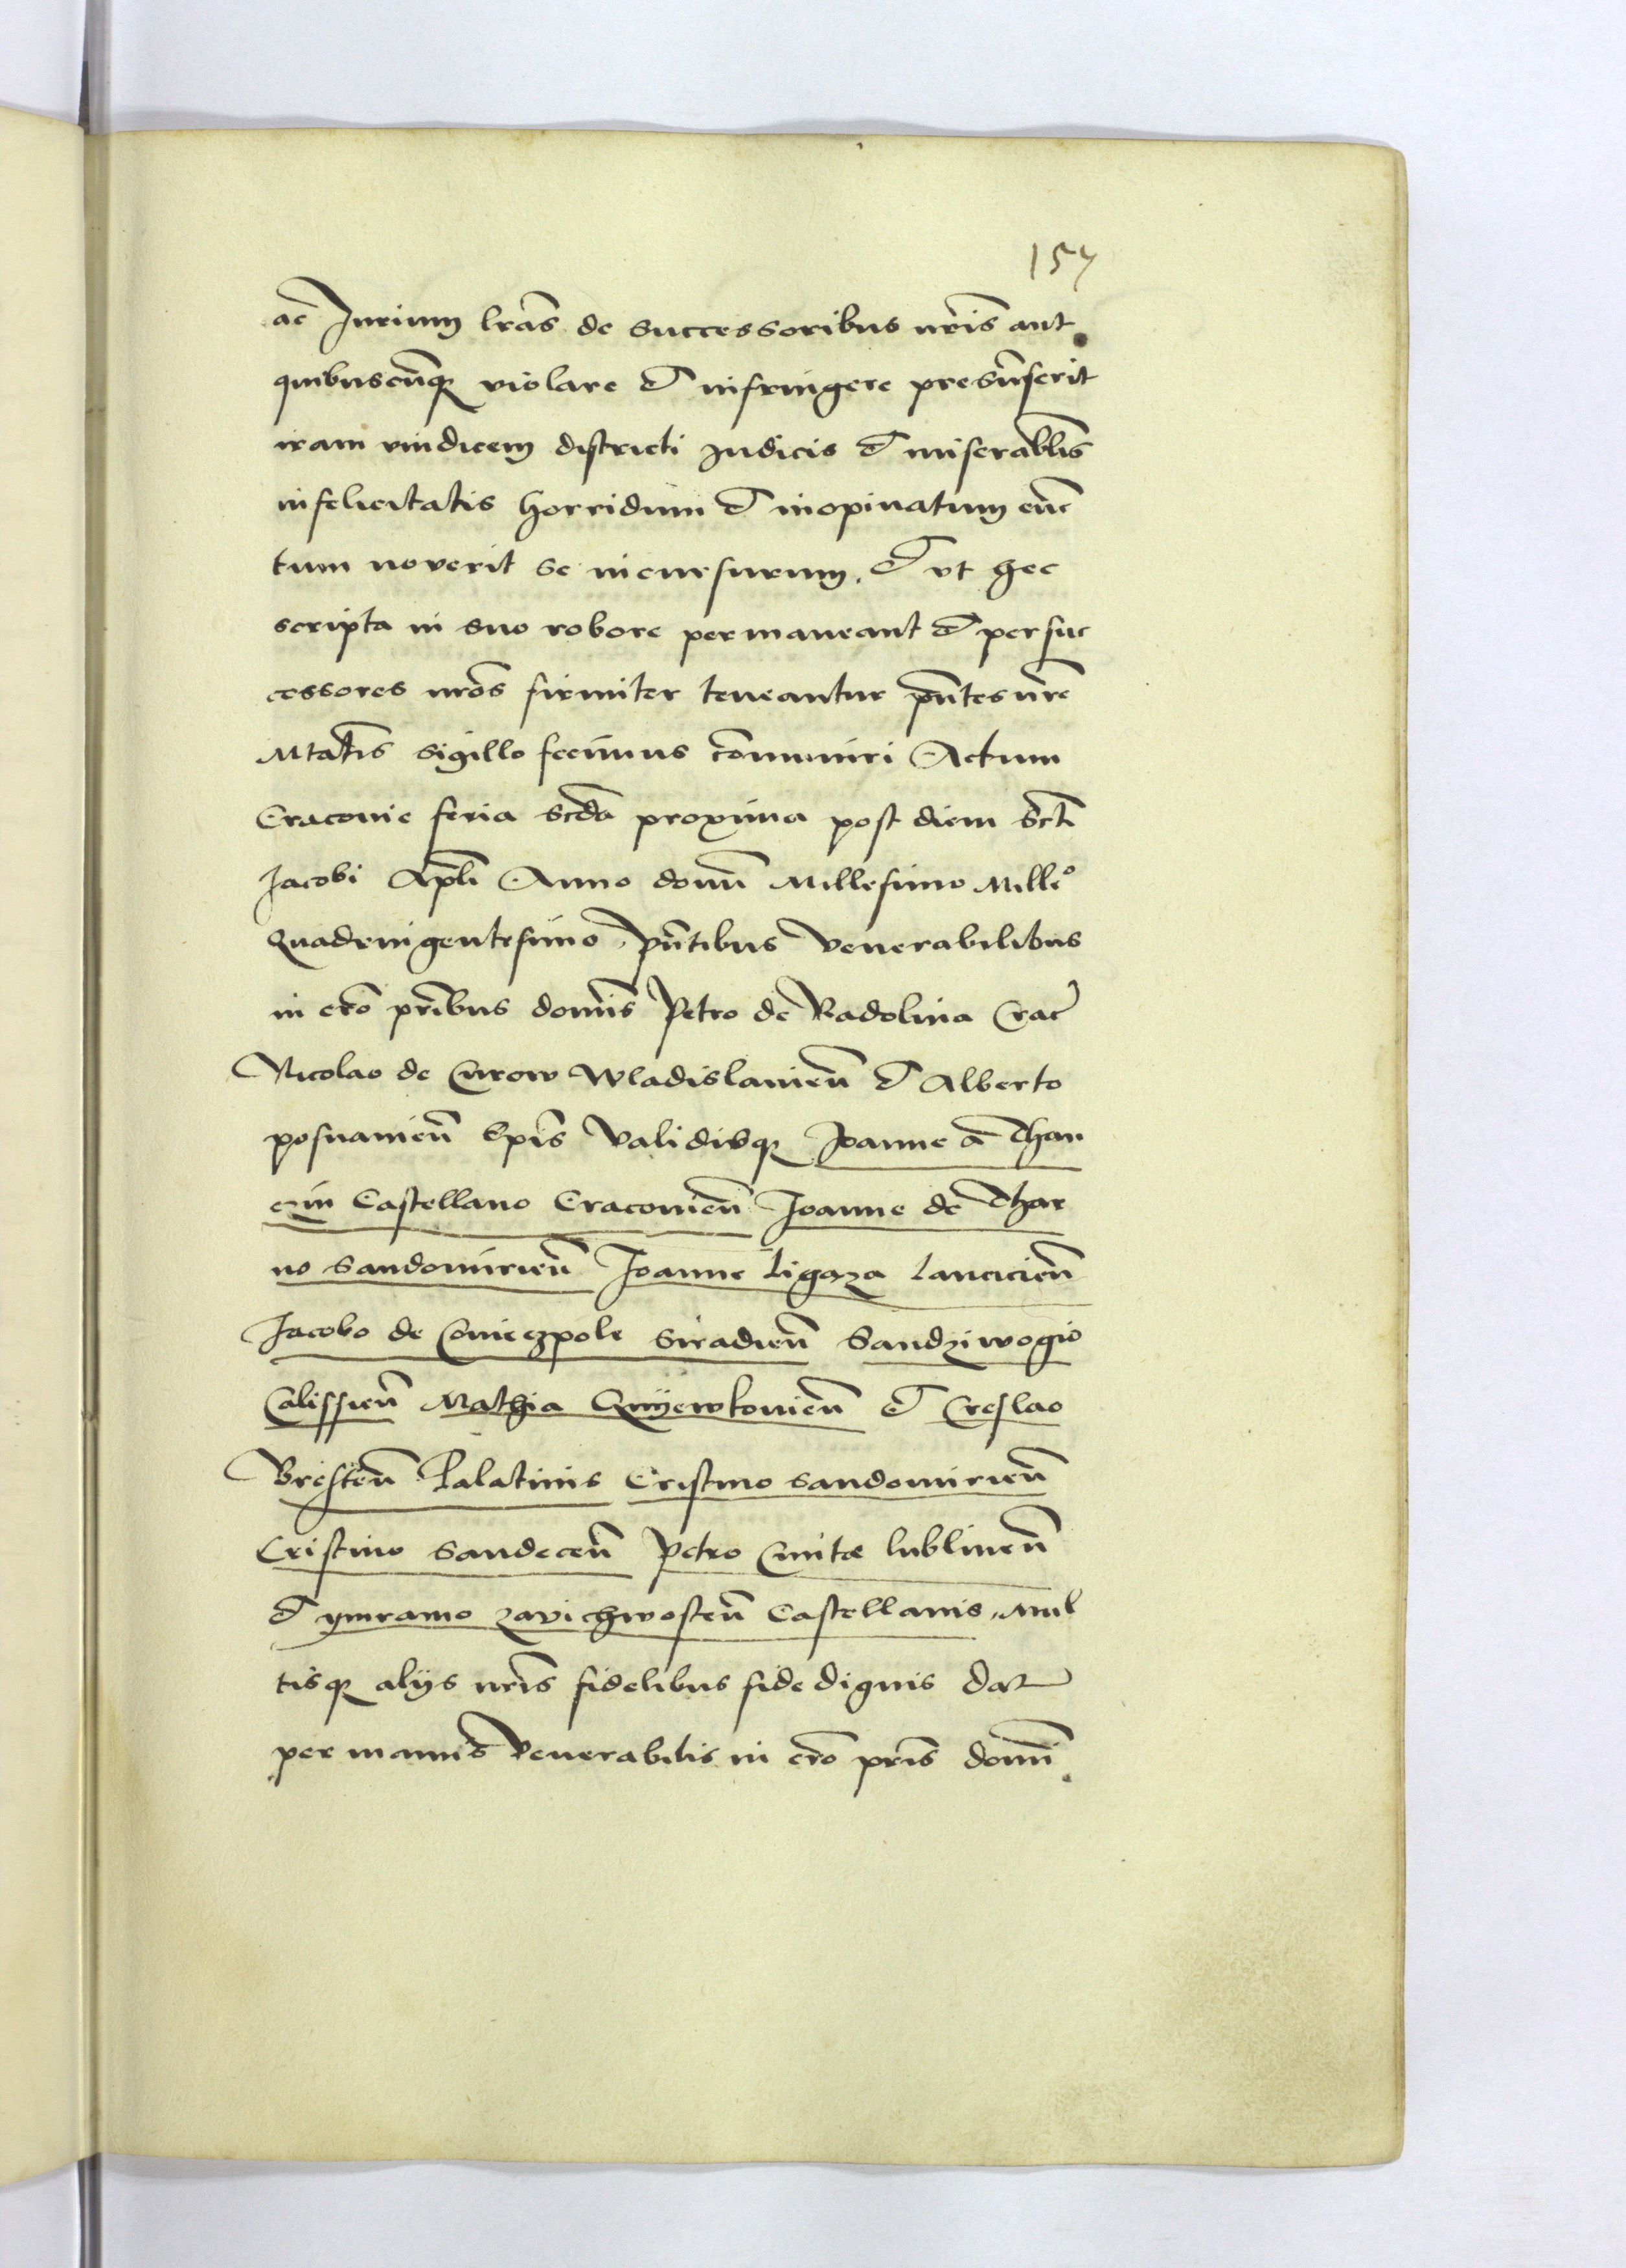 157
ac Jurium lras de successoribus nris aut
quibuscunq violare et infringere presumserit
iram vindicem districti Judicis et miserablis
infelicitatis horridum et inopinatum euen
tum noverit se incursurum. Et vt hec
scripta in suo robore permaneant et per suc
cessores nros firmiter teneantur pntes nre
Mtatis sigillo fecimus comuniri Actum
Cracovie feria scda proxima post diem scti
Jacobi Apli Anno domi Millesimo Mille°
Quadringentesimo, pntibus Venerabilibus
in cro pribus domis Petro de Radolina Crac
Nicolao de Curow Wladislavien et Alberto
posnanien Epis Validisq Joanne a Than
czin Castellano Cracovien Joanne de Thar
no Sandomirien Joanne Ligaza Lancicien
Jacobo de Conieczpole Siradien Sandziwogio
Calissien Mathia Gnyewkovien et Creslao
Bresten Palatinis Cristino Sandomirien
Cristino Sandecen Petro Cmita Lublinen
et ymramo Zavichwosten Castellanis, Mul
tisq alijs nris fidelibus fide dignis Dat
per manus Venerabilis in cro pris domi